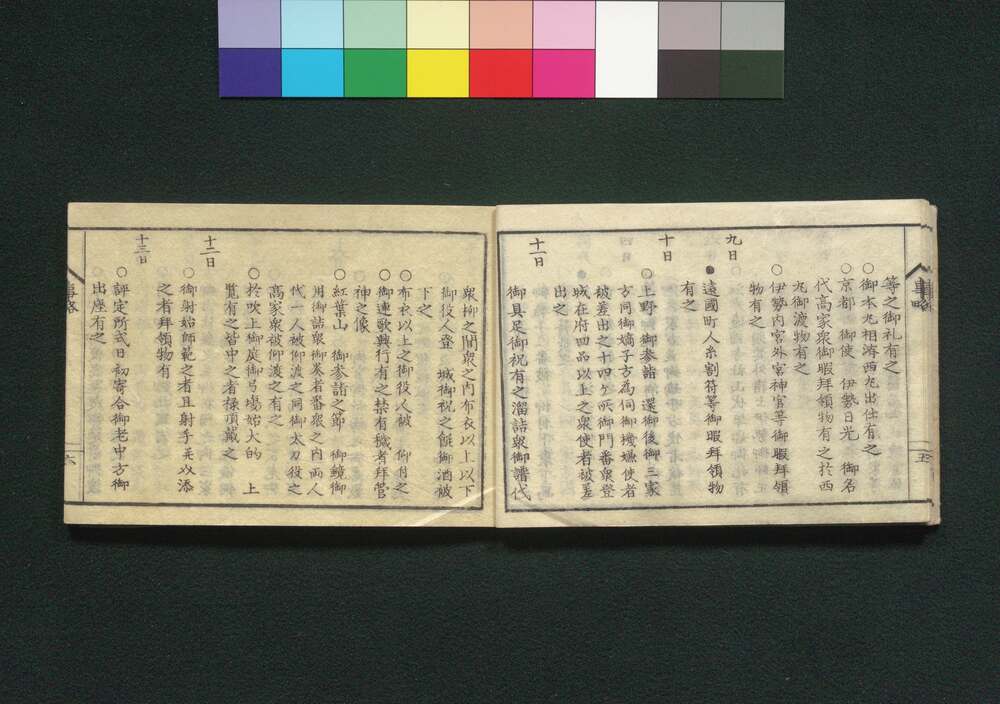 等之御礼有之
○御本丸相済西丸出仕有之
○京都 御使 伊勢日光 御名
代高家衆御暇拝領物有之於西
丸御渡物有之
○伊勢内宮外宮神官等御暇拝領
物有之
九日
●遠國町人糸割符等御暇拝領物
有之
十日
○上野 御参詣 還御後御三家
方同御嫡子方為伺御機嫌使者
被差出之十四ヶ所御門番衆登
城在府四品以上之衆使者被差
出之
十一日
御具足御祝有之溜詰衆御譜代
衆柳之間衆之内布衣以上以下
御役人登 城御祝之餅御酒被
下之
○布衣以上之御役人被 仰付之
○御連歌興行有之禁有穢者拝菅
神之像
○紅葉山 御参詣之節 御鏡御
用御詰衆御奏者番衆之内両人
代一人被仰渡之同御太刀役之
高家衆被仰渡之有之
○於吹上御庭御弓場始大的 上
覧有之皆中之者禄頂戴之
十二日
○御射始師範之者且射手并以添
之者拝領物有
十三日
○評定所式日初寄合御老中方御
出座有之
五
六